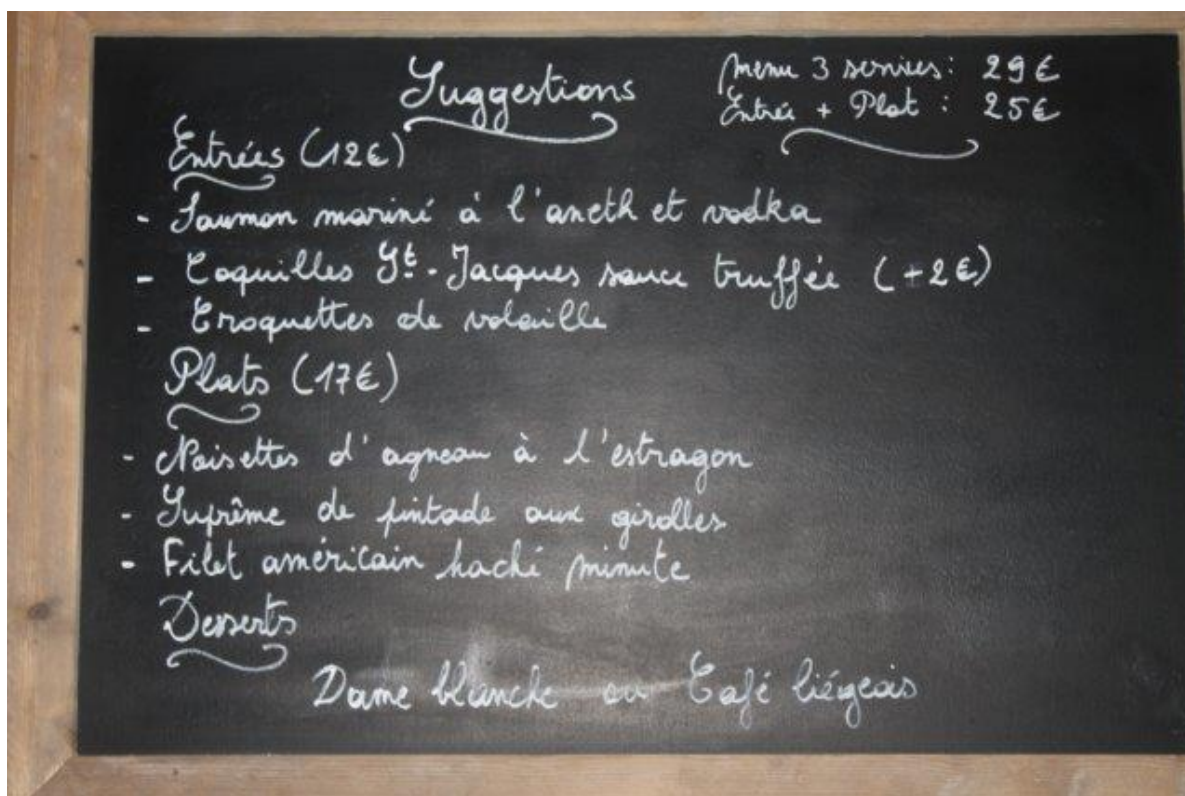 Suggestions
Menu 3 services: 29€
Entrée + Plat : 25€
Entrées (12€)
- Saumon mariné à l'aneth et vodka
- Coquilles St-Jacques sauce truffée (+2€)
- Croquettes de volaille
Plats (17€)
- Noisettes d'agneau à l'estragon
- Suprême de pintade aux girolles
- Filet américain haché minute
Desserts
Dame blanche ou Café liégeois